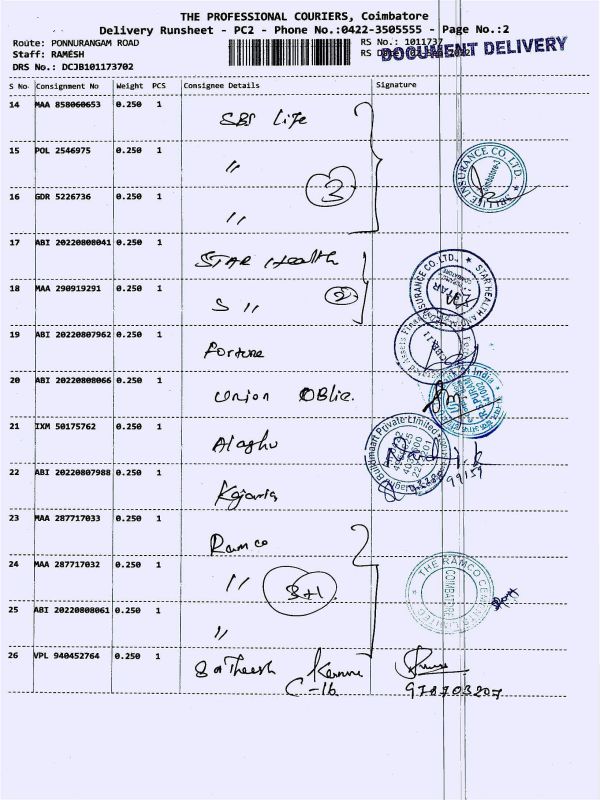 THE PROFESSIONAL COURIERS, Coimbatore
Delivery Runsheet - PC2 - Phone No.:0422-3505555 - Page No.:2
Route: PONNURANGAM ROAD RS No.: 1011737
Staff: RAMESH RS D
DOCUMENT DELIVERY
DRS No.: DCJB101173702
S No Consignment No Weight PCS Consignee Details Signature
14 MAA 858060653 0.250 1 SBI Life
15 POL 2546975 0.250 1 "
3
16 GDR 5226736 0.250 1 "
SBI LIFE INSURANCE CO. LTD.
17 ABI 20220808041 0.250 1 STAR Health
18 MAA 290919291 0.250 1 S "
2
STAR HEALTH AND INSURANCE CO.LTD.
STAR
19 ABI 20220807962 0.250 1 Fortune
20 ABI 20220808066 0.250 1 Union
India
21 IXM 50175762 0.250 1 Alaghu
Buildmaart Private Limited
22 ABI 20220807988 0.250 1 Kajaria
99159
23 MAA 287717033 0.250 1 Ramco
24 MAA 287717032 0.250 1 "
3+1
THE RAMCO CEMENTS LIMITED
COIMBATORE
25 ABI 20220808061 0.250 1 "
26 VPL 940452764 0.250 1 Satheesh
C-16